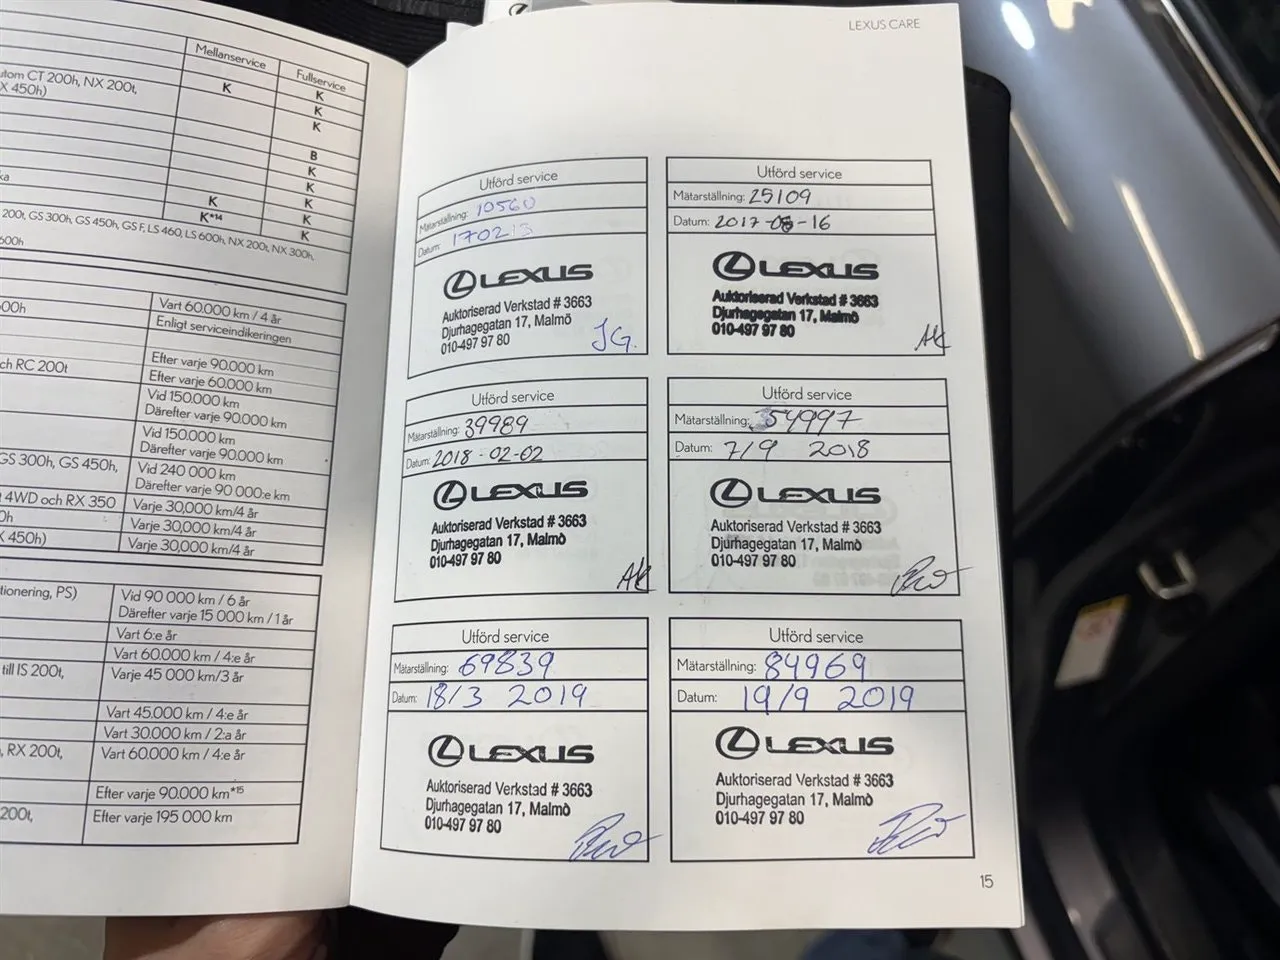 Mellanservice
Fullservice
utom CT 200h, NX 200t,
X 450h)
K
K
K
K
B
K
K
K
K
K
K*14
K
200t, GS 300h, GS 450h, GS F, LS 460, LS 600h, NX 200t, NX 300h,
600h
Vart 60.000 km / 4 år
Enligt serviceindikeringen
Efter varje 90.000 km
och RC 200t
Efter varje 60.000 km
Vid 150.000 km
Därefter varje 90.000 km
Vid 150.000 km
Därefter varje 90.000 km
GS 300h, GS 450h,
Vid 240 000 km
Därefter varje 90 000:e km
4WD och RX 350
Varje 30,000 km/4 år
Varje 30,000 km/4 år
X 450h)
Varje 30,000 km/4 år
tionering, PS)
Vid 90 000 km / 6 år
Därefter varje 15 000 km / 1 år
Vart 6:e år
Vart 60.000 km / 4:e år
till IS 200t,
Varje 45 000 km/3 år
Vart 45.000 km / 4:e år
Vart 30.000 km / 2:a år
RX 200t,
Vart 60.000 km / 4:e år
Efter varje 90.000 km*15
200t,
Efter varje 195 000 km
LEXUS CARE
Utförd service
Mätarställning: 10560
Datum: 170213
LEXUS
Auktoriserad Verkstad # 3663
Djurhagegatan 17, Malmö
010-497 97 80
JG.
Utförd service
Mätarställning: 25109
Datum: 2017-08-16
LEXUS
Auktoriserad Verkstad # 3663
Djurhagegatan 17, Malmö
010-497 97 80
AK
Utförd service
Mätarställning: 39989
Datum: 2018-02-02
LEXUS
Auktoriserad Verkstad # 3663
Djurhagegatan 17, Malmö
010-497 97 80
AK
Utförd service
Mätarställning: 54997
Datum: 7/9 2018
LEXUS
Auktoriserad Verkstad # 3663
Djurhagegatan 17, Malmö
010-497 97 80
Utförd service
Mätarställning: 69839
Datum: 18/3 2019
LEXUS
Auktoriserad Verkstad # 3663
Djurhagegatan 17, Malmö
010-497 97 80
Utförd service
Mätarställning: 84969
Datum: 19/9 2019
LEXUS
Auktoriserad Verkstad # 3663
Djurhagegatan 17, Malmö
010-497 97 80
15